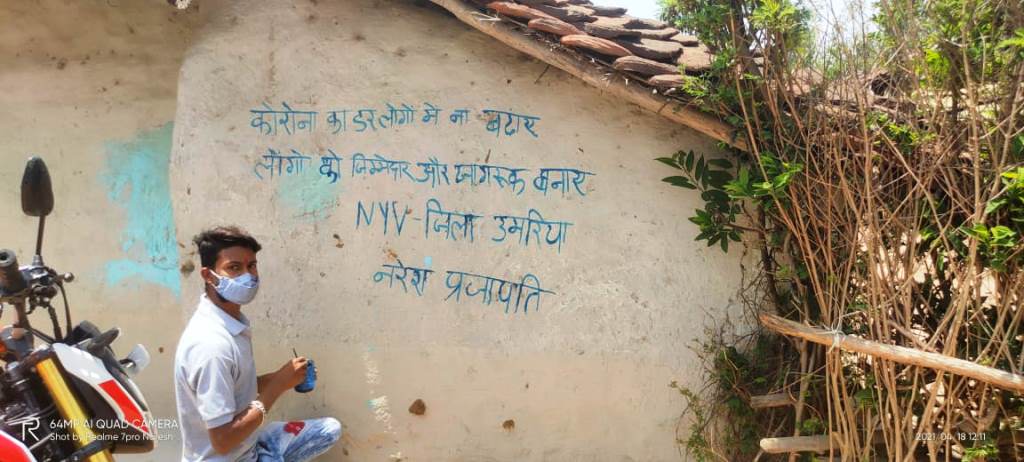 कोरोना का डर लोगों में ना बढाए
लोगों को जिम्मेदार और जागरूक बनाए
NYV-जिला उमरिया
नरेश प्रजापति
64MP AI QUAD CAMERA
Shot by Realme 7pro Naresh
2021.04.18 12:11